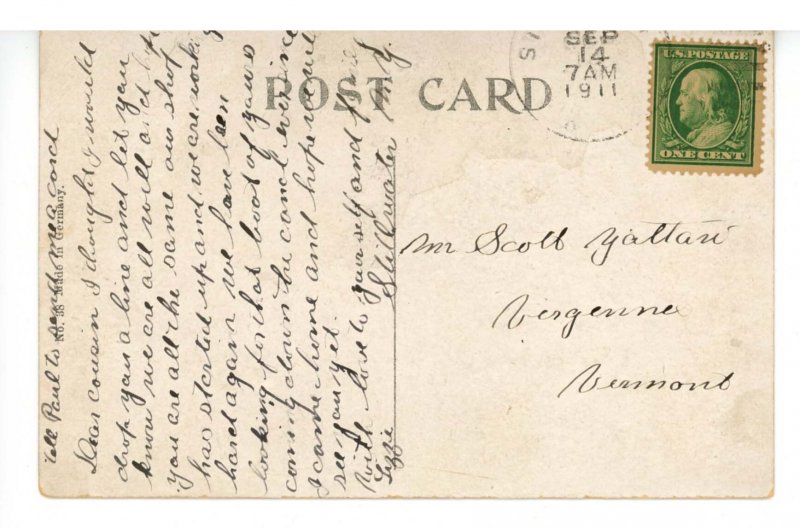 POST CARD
SEP
14
7AM
1911
U.S. POSTAGE
ONE CENT
No. 38 Made in Germany.
Tell Paul to send me a card
Dear cousin I thought I would
drop you a line and let you
know we are all well and hope
you are all the same our shop
has started up and we are working
hard again we have been
looking for that boat of yours
coming down the canal ever since
I came home and hope I will
see you yet.
With love to yourself and
Lizzie
Stillwater N.Y.
Mr Scott Yattaw
Vergennes
Vermont